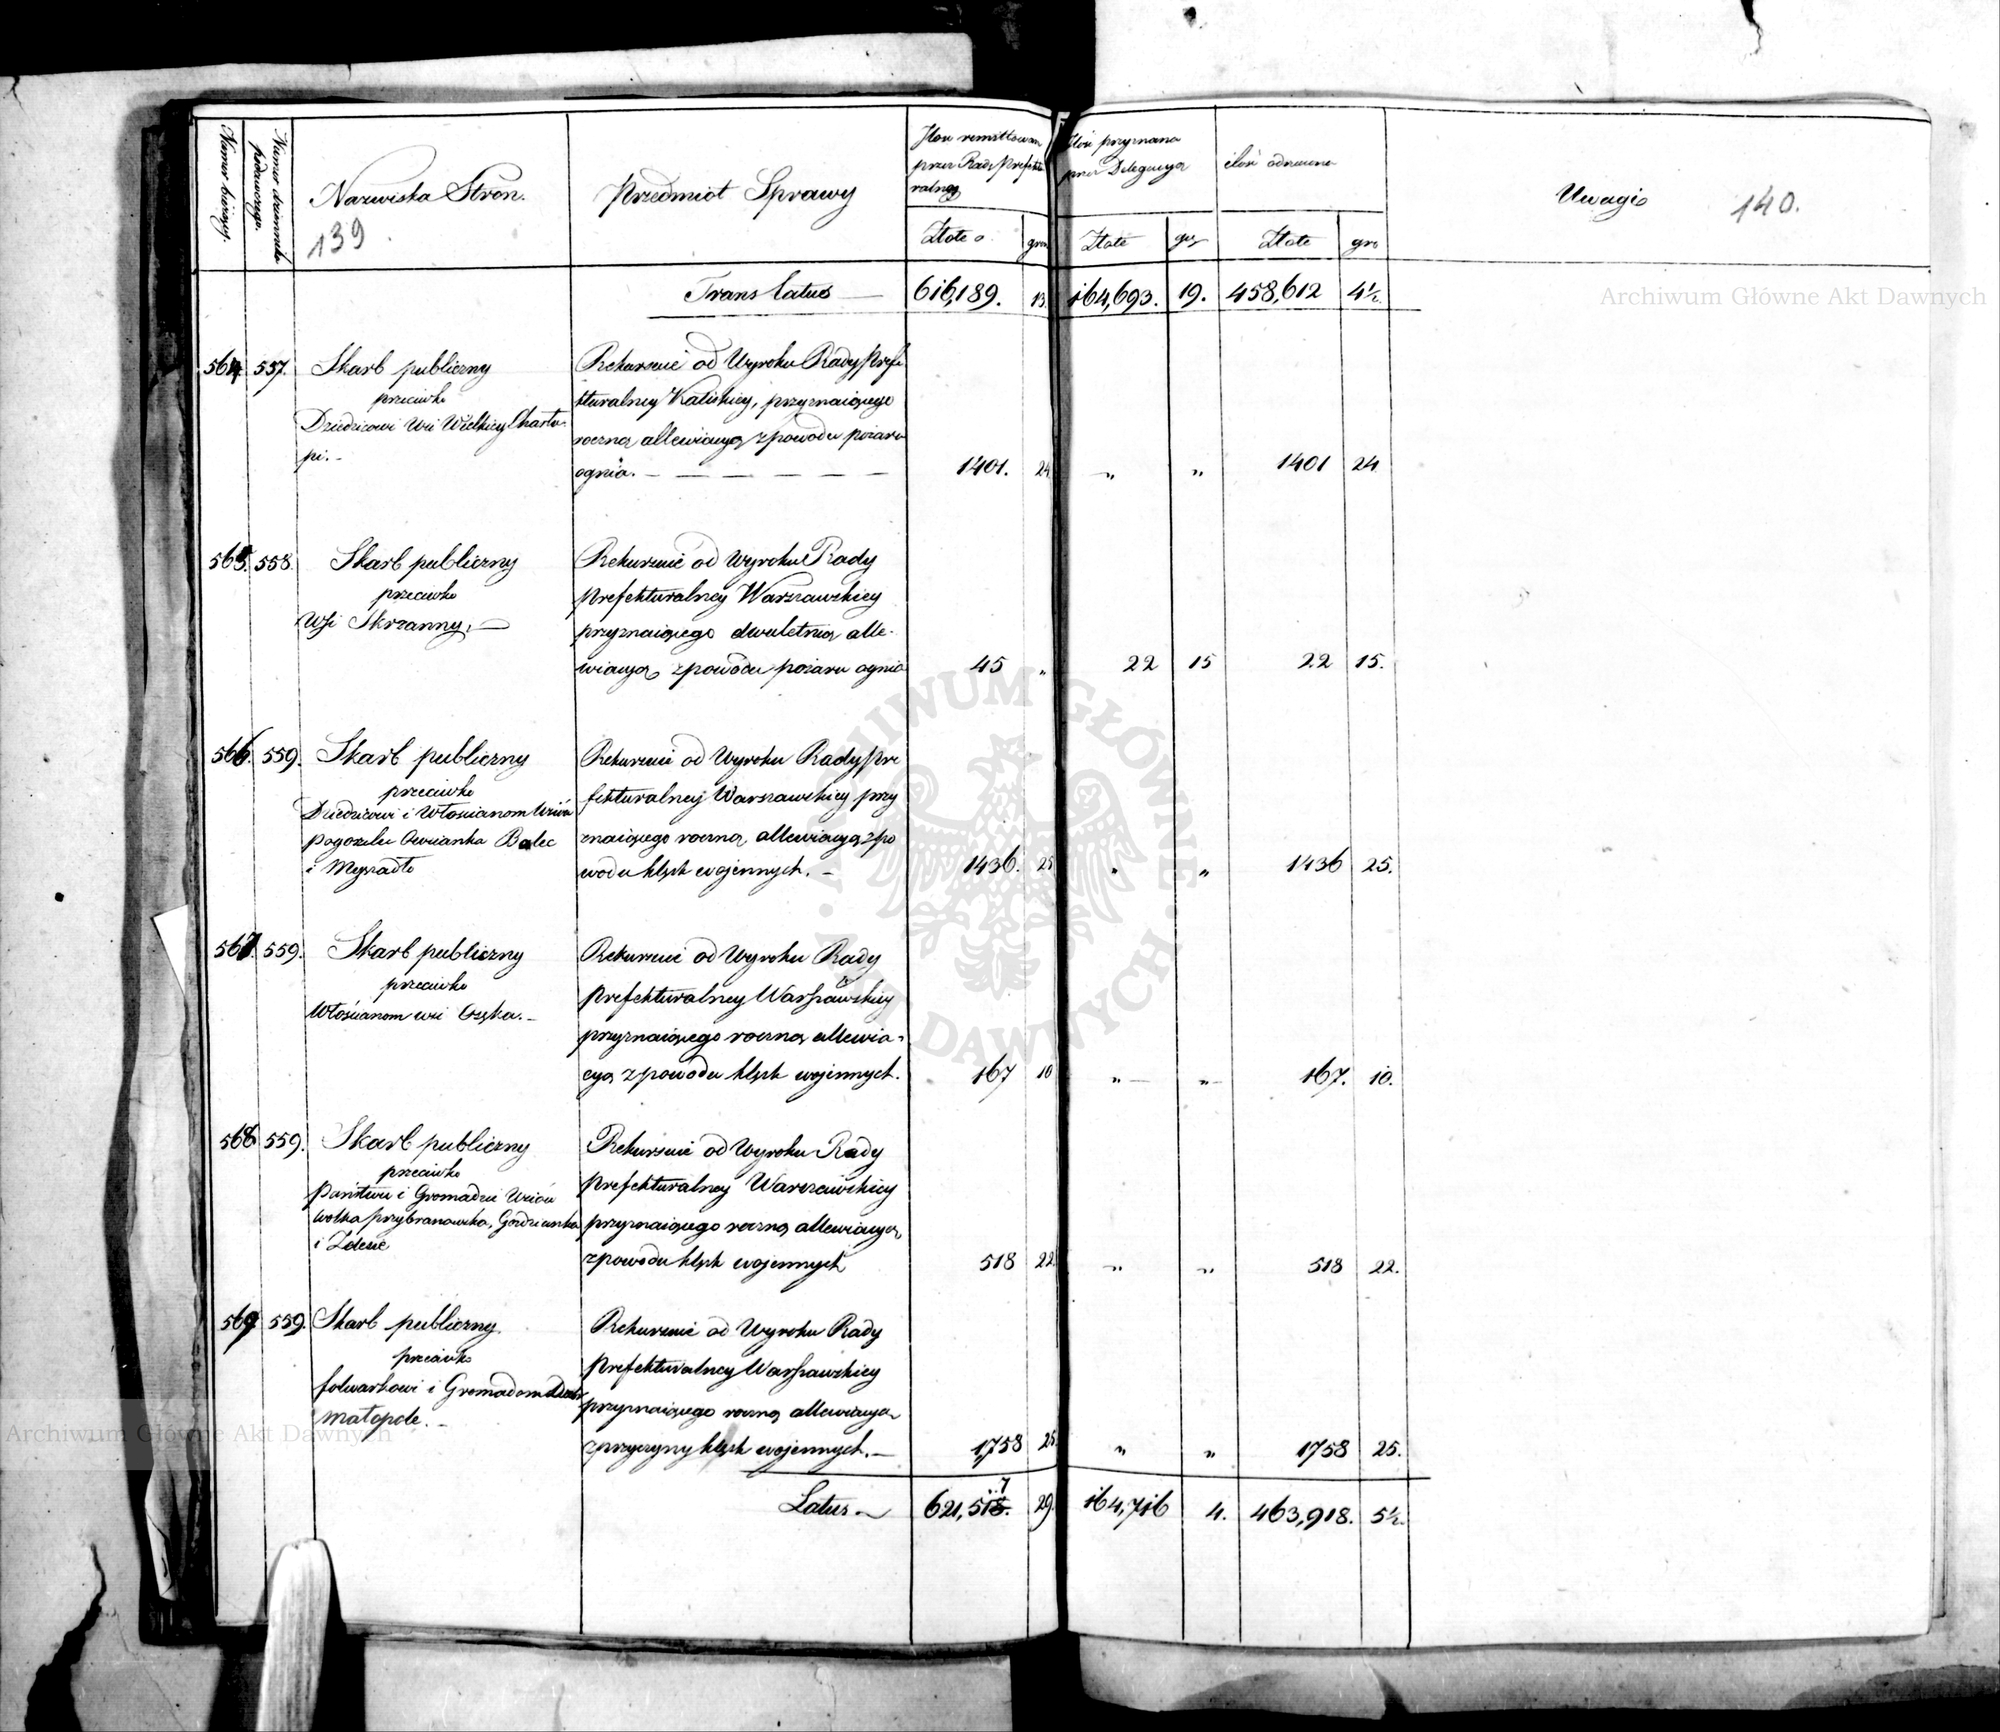 Numer bieżący.
Numer dziennika
podawczego.
Nazwiska Stron.
139
Przedmiot Sprawy
przez Radę Prefektu
ralną
Złote
gro
Ilość przyznana
przez Delegacyą
Złote
gr
ilość
Złote
gro
Uwagi
140.
Translatus — 616,189. 13 164,693. 19. 458,612 4½.
564 557. Skarb publiczny
przeciwko
Dziedzicowi Wsi Wielkiey Charłu-
pi. -
Rekursuie od Wyroku Rady Prefe
kturalney Kaliskiey, przyznaiącego
roczną allewiacyą z powodu pożaru
ognia. — — — — — — 1401. 24 „ „ 1401 24
565. 558. Skarb publiczny
przeciwko
Wsi Skrzanny. —
Rekursuie od Wyroku Rady
Prefekturalney Warszawskiey
przyznaiącego dwuletnią alle-
wiacyą z powodu pożaru ognia 45 „ 22 15 22 15.
566. 559. Skarb publiczny
przeciwko
Dziedzicowi i Włościanom Wsiów
i
Rekursuie od Wyroku Rady Pre
fekturalney Warszawskiey przy
znaiącego roczną allewiacyą z po
wodu klęsk wojennych. - 1436. 25 „ „ 1436 25.
567. 559. Skarb publiczny
przeciwko
Włościanom wsi -
Rekursuie od Wyroku Rady
Prefekturalney Warszawskiey
przyznaiącego roczną allewia-
cyą z powodu klęsk wojennych. 167 10 „ „ 167. 10.
568 559. Skarb publiczny
przeciwko
Państwu i Gromadzie Wsiów
Wolka Przybranowska,
i
Rekursuie od Wyroku Rady
Prefekturalney Warszawskiey
przyznaiącego roczną allewiacyą
z powodu klęsk wojennych 518 22 „ „ 518 22.
569 559. Skarb publiczny
przeciwko
folwarkowi i Gromadom
Małopole. -
Rekursuie od Wyroku Rady
Prefekturalney Warszawskiey
przyznaiącego roczną allewiacyą
z przyczyny klęsk wojennych. — 1758 25. „ „ 1758 25.
Latus — 621,517. 29. 164,716 4. 463,918. 5½.
Archiwum Główne Akt Dawnych
ARCHIWUM GŁÓWNE AKT DAWNYCH
Archiwum Główne Akt Dawnych